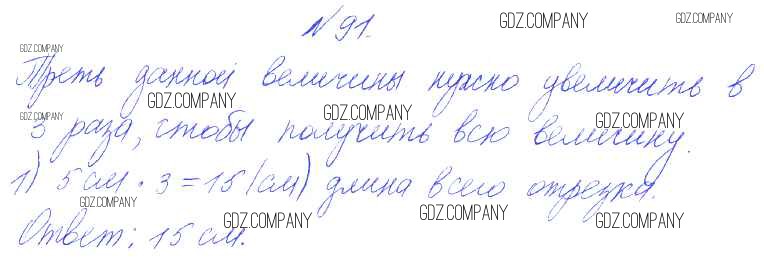 № 91.
Треть данной величины нужно увеличить в
3 раза, чтобы получить всю величину.
1) 5 см · 3 = 15 (см) длина всего отрезка.
Ответ: 15 см.
GDZ.COMPANY GDZ.COMPANY
GDZ.COMPANY
GDZ.COMPANY GDZ.COMPANY
GDZ.COMPANY GDZ.COMPANY
GDZ.COMPANY GDZ.COMPANY GDZ.COMPANY GDZ.COMPANY